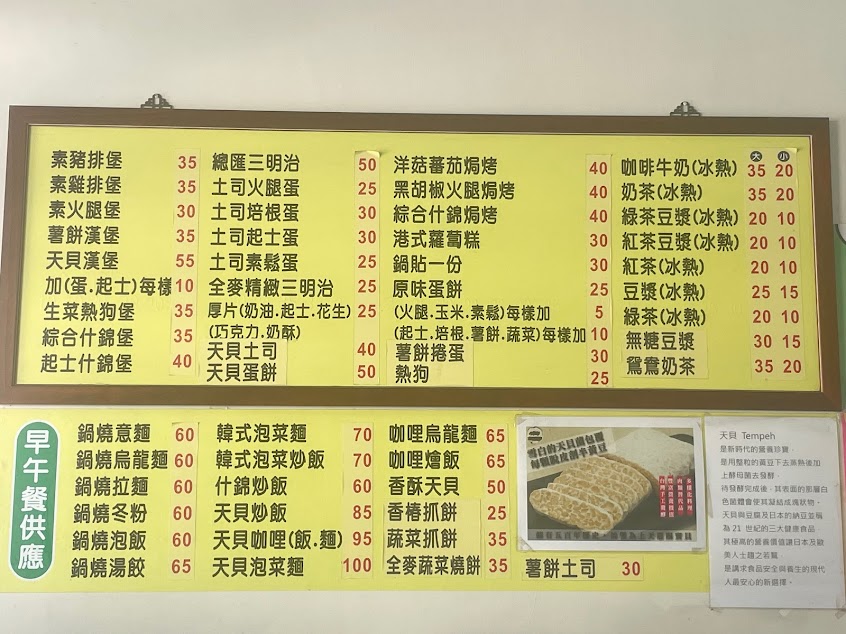 素豬排堡 35
素雞排堡 35
素火腿堡 30
薯餅漢堡 35
天貝漢堡 55
加(蛋.起士)每樣 10
生菜熱狗堡 35
綜合什錦堡 35
起士什錦堡 40
總匯三明治 50
土司火腿蛋 25
土司培根蛋 30
土司起士蛋 30
土司素鬆蛋 25
全麥精緻三明治 25
厚片(奶油.起士.花生) 25
(巧克力.奶酥)
天貝土司 40
天貝蛋餅 50
洋菇蕃茄焗烤 40
黑胡椒火腿焗烤 40
綜合什錦焗烤 40
港式蘿蔔糕 30
鍋貼一份 30
原味蛋餅 25
(火腿.玉米.素鬆)每樣加 5
(起士.培根.薯餅.蔬菜)每樣加 10
薯餅捲蛋 30
熱狗 25
大 小
咖啡牛奶(冰熱) 35 20
奶茶(冰熱) 35 20
綠茶豆漿(冰熱) 20 10
紅茶豆漿(冰熱) 20 10
紅茶(冰熱) 20 10
豆漿(冰熱) 25 15
綠茶(冰熱) 20 10
無糖豆漿 30 15
鴛鴦奶茶 35 20
早午餐供應
鍋燒意麵 60
鍋燒烏龍麵 60
鍋燒拉麵 60
鍋燒冬粉 60
鍋燒泡飯 60
鍋燒湯餃 65
韓式泡菜麵 70
韓式泡菜炒飯 70
什錦炒飯 60
天貝炒飯 85
天貝咖哩(飯.麵) 95
天貝泡菜麵 100
咖哩烏龍麵 65
咖哩燴飯 65
香酥天貝 50
香椿抓餅 25
蔬菜抓餅 35
全麥蔬菜燒餅 35
雪白的天貝菌包覆
每顆脫皮剖半黃豆
薯餅土司 30
天貝 Tempeh
是新時代的營養珍寶，
是用整粒的黃豆下去蒸熟後加
上酵母菌去發酵，
待發酵完成後，其表面的那層白
色菌體會使其凝結成塊狀物。
天貝與豆腐及日本的納豆並稱
為 21 世紀的三大健康食品
其極高的營養價值讓日本及歐
美人士趨之若鶩
是講求食品安全與養生的現代
人最安心的新選擇。